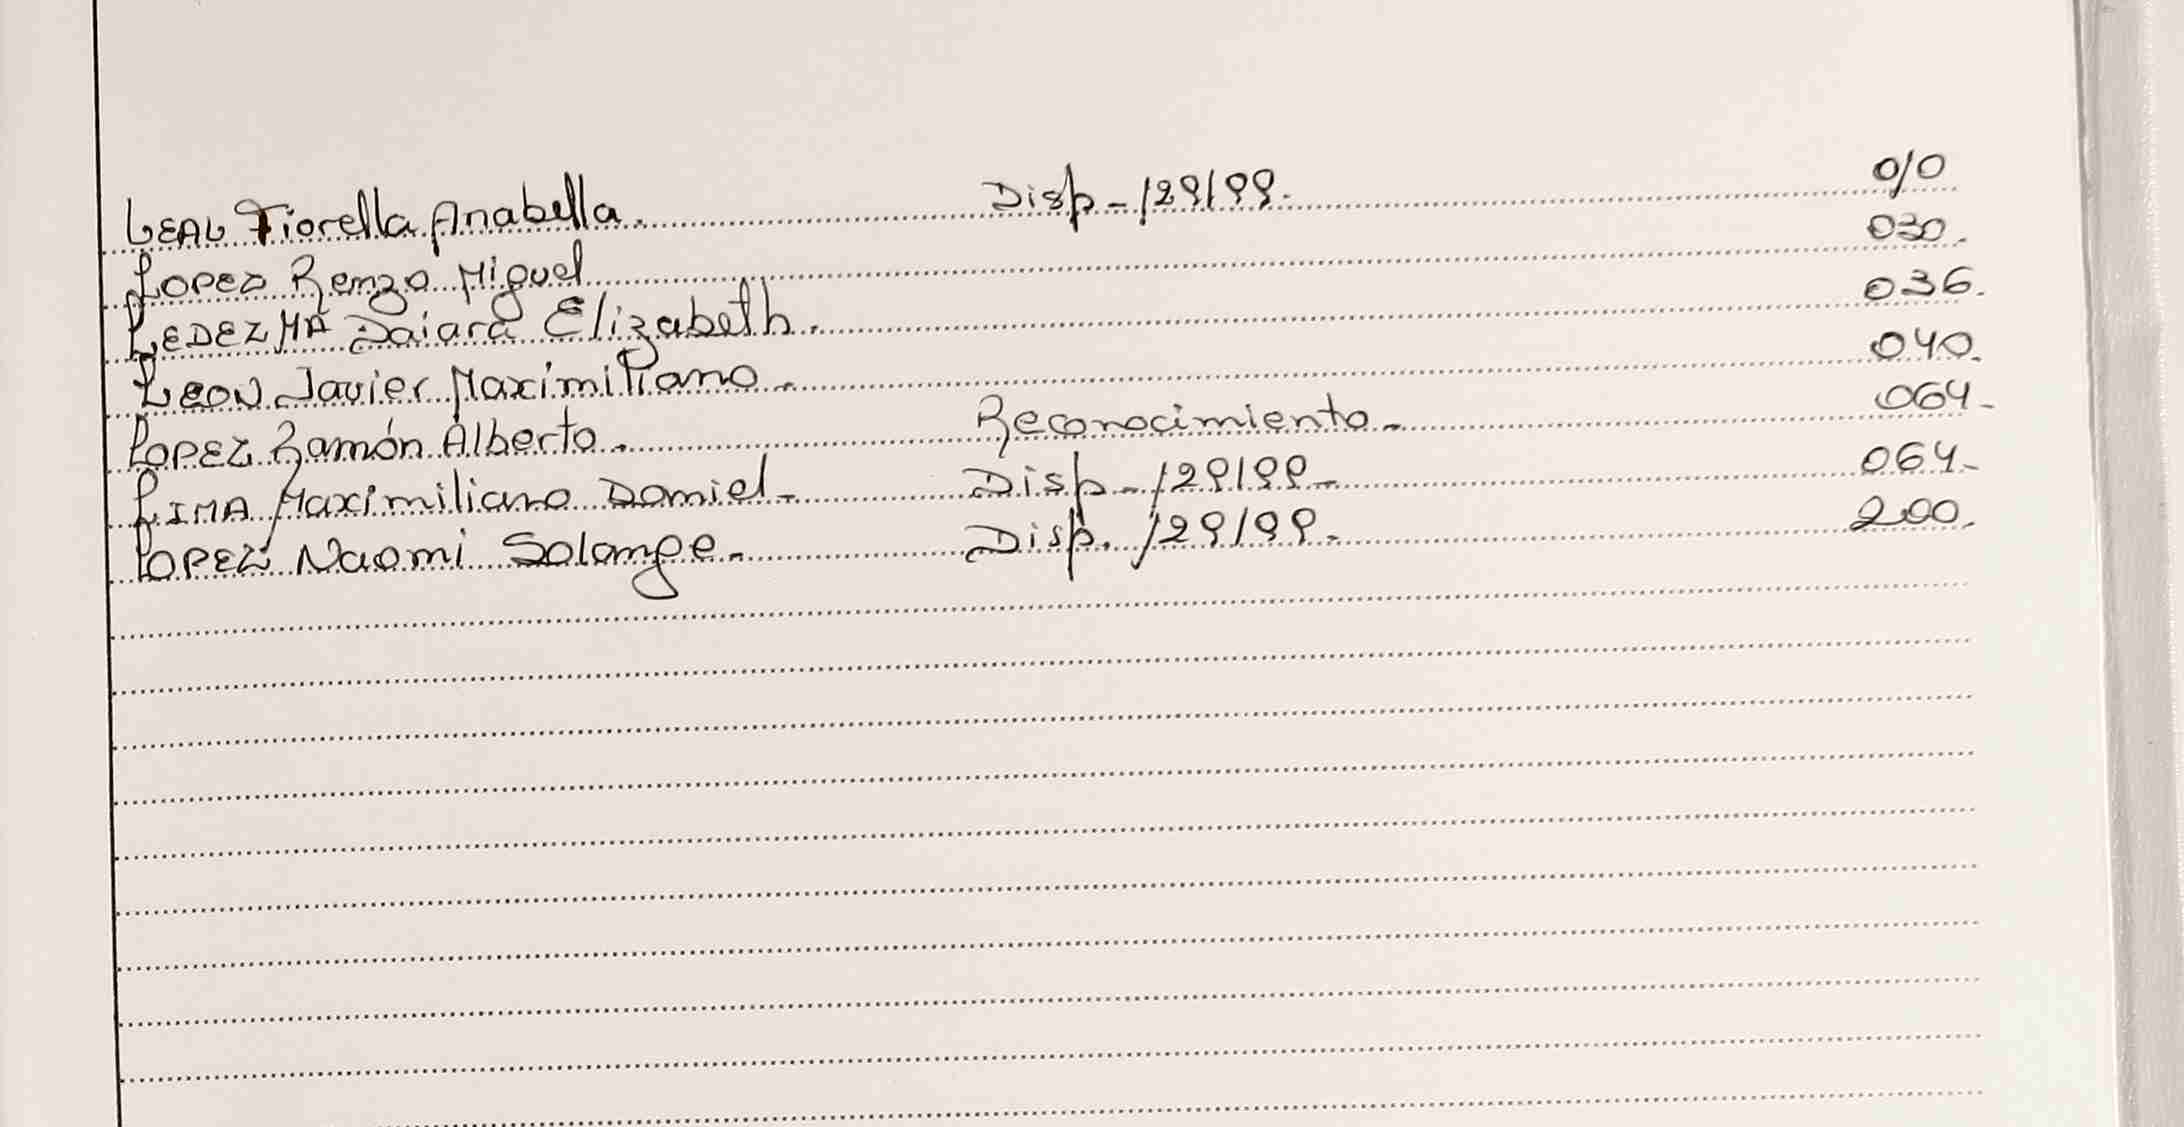 LEAL Fiorella Anabella. Disp-129/99. 010
LOPEZ Renzo Miguel 030.
LEDEZMA Daiara Elizabeth. 036.
LEON Javier Maximiliano. 040.
LOPEZ Ramón Alberto. Reconocimiento. 064-
LIMA Maximiliano Daniel- Disp-129/99- 064-
LOPEZ Naomi Solange. Disp. 129/99. 200.